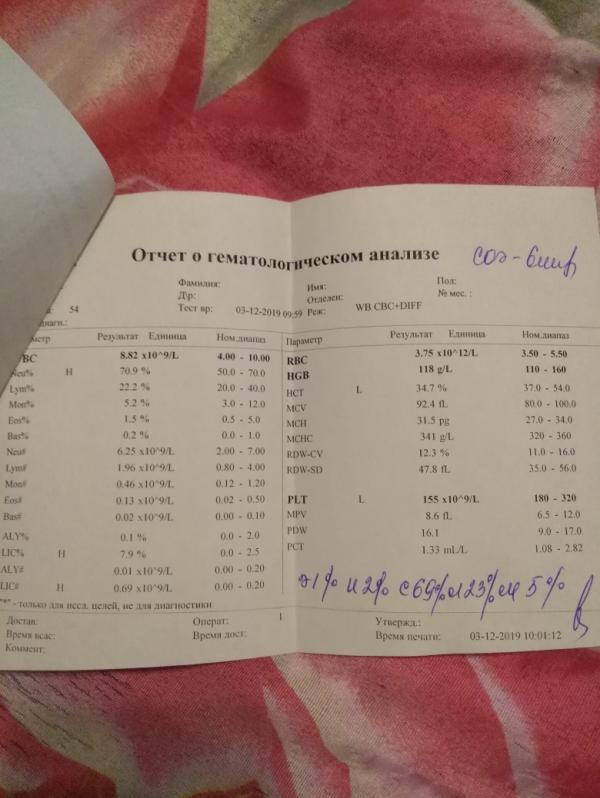 Отчет о гематологическом анализе СОЭ-6мм/ч
Фамилия: Имя: Пол:
Д\р: Отделен: № мес. :
54 Тест вр: 03-12-2019 09:59 Реж: WB CBC+DIFF
Результат Единица Ном.диапаз
8.82 x10^9/L 4.00 - 10.00
Neu% H 70.9 % 50.0 - 70.0
Lym% 22.2 % 20.0 - 40.0
Mon% 5.2 % 3.0 - 12.0
Eos% 1.5 % 0.5 - 5.0
Bas% 0.2 % 0.0 - 1.0
Neu# 6.25 x10^9/L 2.00 - 7.00
Lym# 1.96 x10^9/L 0.80 - 4.00
Mon# 0.46 x10^9/L 0.12 - 1.20
Eos# 0.13 x10^9/L 0.02 - 0.50
Bas# 0.02 x10^9/L 0.00 - 0.10
ALY% 0.1 % 0.0 - 2.0
LIC% H 7.9 % 0.0 - 2.5
ALY# 0.01 x10^9/L 0.00 - 0.20
LIC# H 0.69 x10^9/L 0.00 - 0.20
Параметр Результат Единица Ном.диапаз
RBC 3.75 x10^12/L 3.50 - 5.50
HGB 118 g/L 110 - 160
HCT L 34.7 % 37.0 - 54.0
MCV 92.4 fL 80.0 - 100.0
MCH 31.5 pg 27.0 - 34.0
MCHC 341 g/L 320 - 360
RDW-CV 12.3 % 11.0 - 16.0
RDW-SD 47.8 fL 35.0 - 56.0
PLT L 155 x10^9/L 180 - 320
MPV 8.6 fL 6.5 - 12.0
PDW 16.1 9.0 - 17.0
PCT 1.33 mL/L 1.08 - 2.82
э1% п2% с69% л23% м 5%
"*" - только для иссл. целей, не для диагностики
Достав: Операт: 1 Утвержд.:
Время всас: Время дост: Время печати: 03-12-2019 10:01:12
Комент: